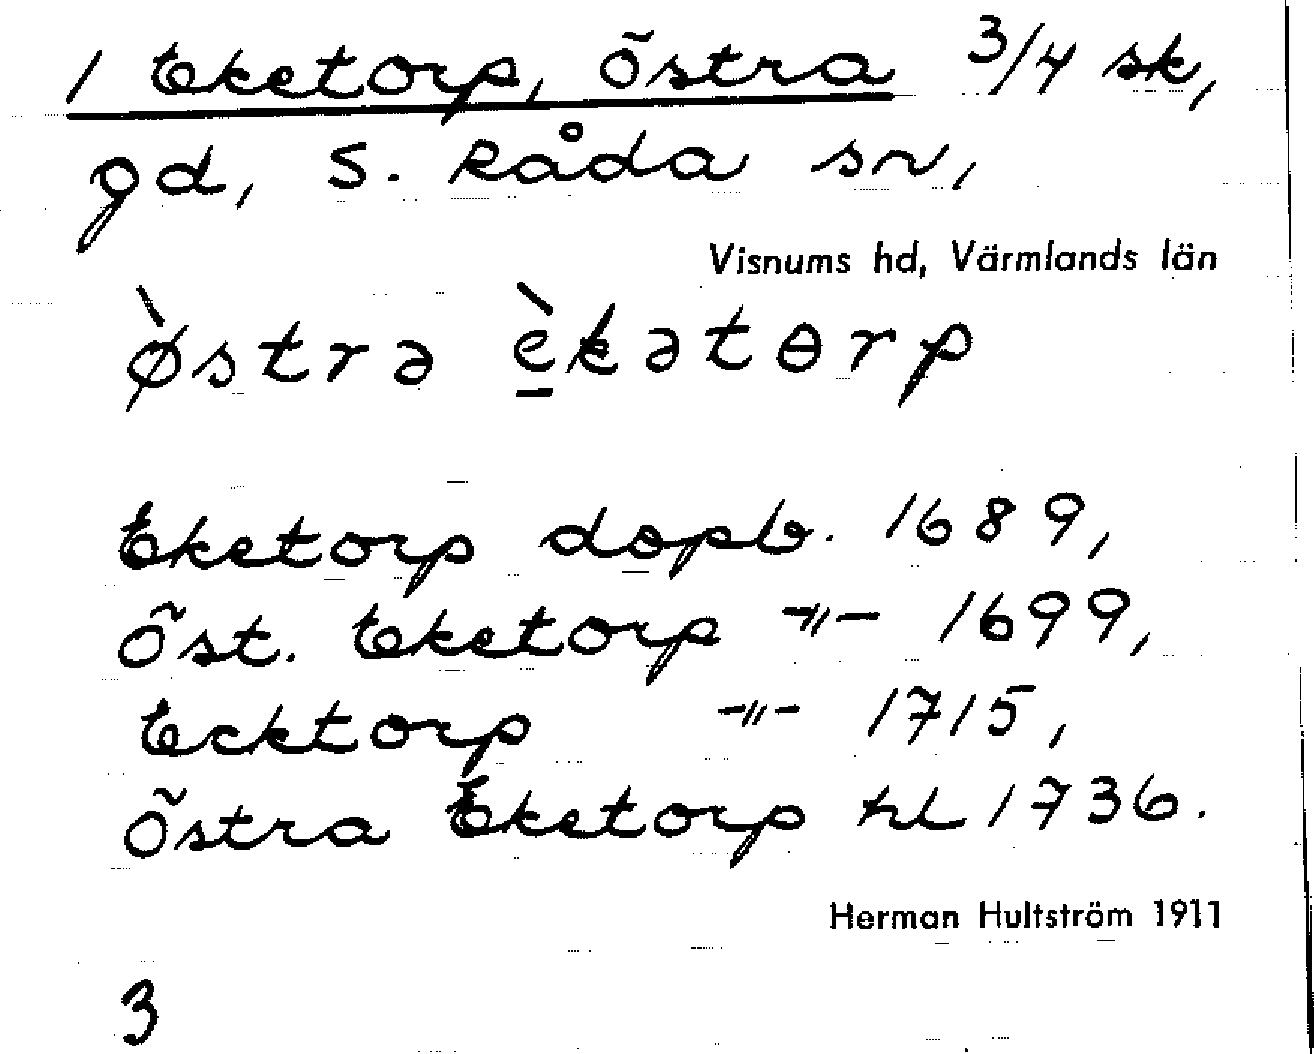 1 Eketorp, Östra 3/4 sk,
gd, S. Råda sn,
Visnums hd, Värmlands län
ø̀strə è̱kətɵrp
Eketorp dopb. 1689,
Öst. Eketorp -"- 1699,
Ecktorp -"- 1715,
Östra Eketorp hl 1736.
Herman Hultström 1911
3